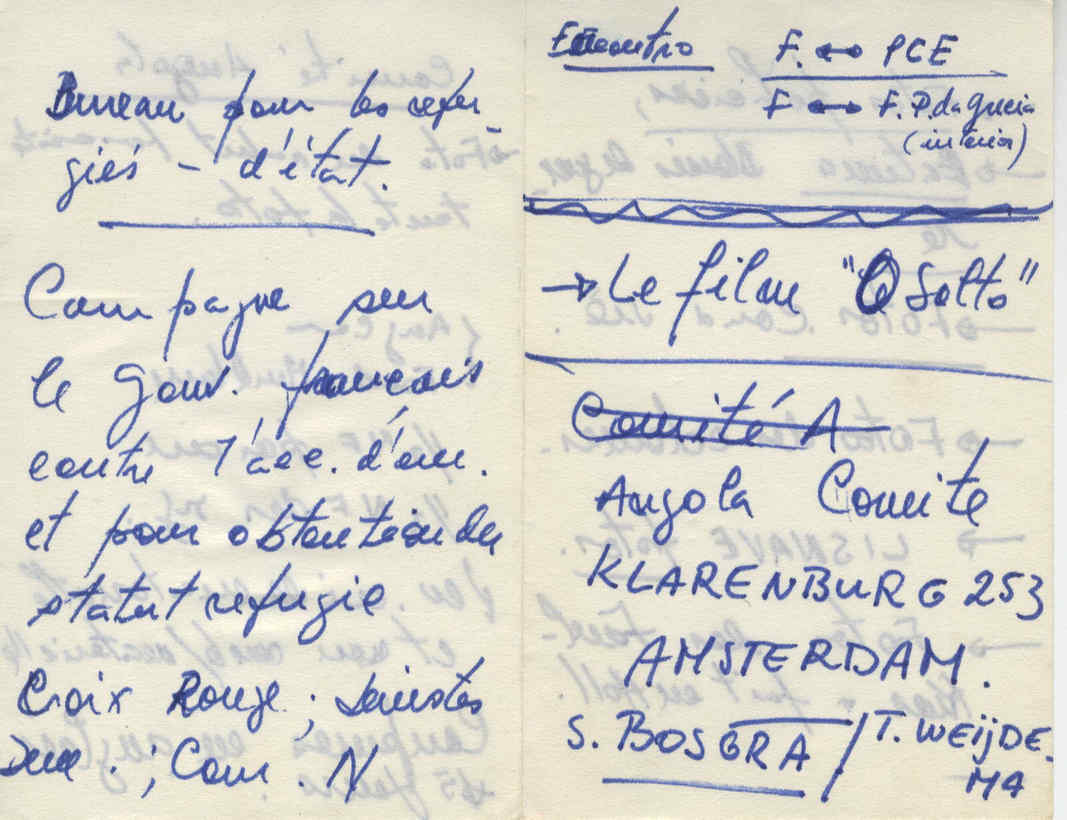 Bureau pour les refu-
giés - d'état.
Campagne sur
le gouv. français
contre l'acc. d'em.
et pour obtention du
statut refugie
Croix Rouge ;
; Com. N
Encontro F. ↔ PCE
F ↔ F.P. da Grecia
(interior)
→ Le film "O Salto"
Comité A
Angola Comité
KLARENBURG 253
AMSTERDAM.
S. BOSGRA / T. WEijDE-
MA